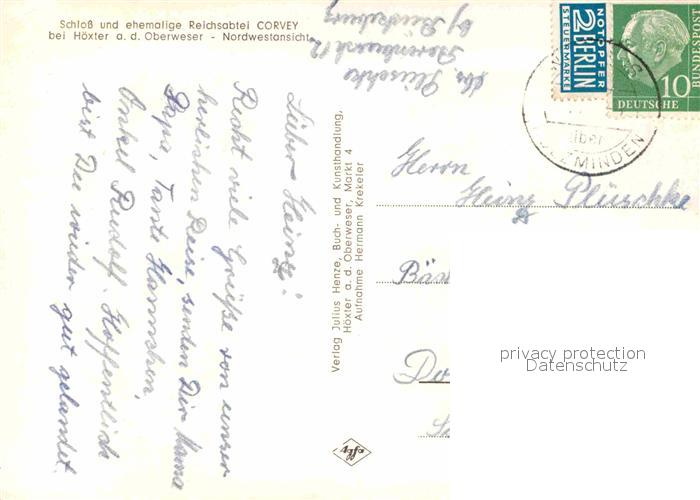 Schloß und ehemalige Reichsabtei CORVEY
bei Höxter a. d. Oberweser - Nordwestansicht
Abs. Plüschke
b/ Bückeburg
Lieber Heinz!
Recht viele Grüße von unser
herrlichen Reise, senden Dir Mama
Papa, Tante Hannchen,
Onkel Rudolf. Hoffentlich
bist Du wieder gut gelandet.
Verlag Julius Henze, Buch- und Kunsthandlung,
Höxter a. d. Oberweser, Markt 4
Aufnahme Hermann Krekeler
Agfa
NOTOPFER
2 BERLIN
STEUERMARKE
10
DEUTSCHE
BUNDESPOST
über
HOLZMINDEN
Herrn
Heinz Plüschke
privacy protection
Datenschutz